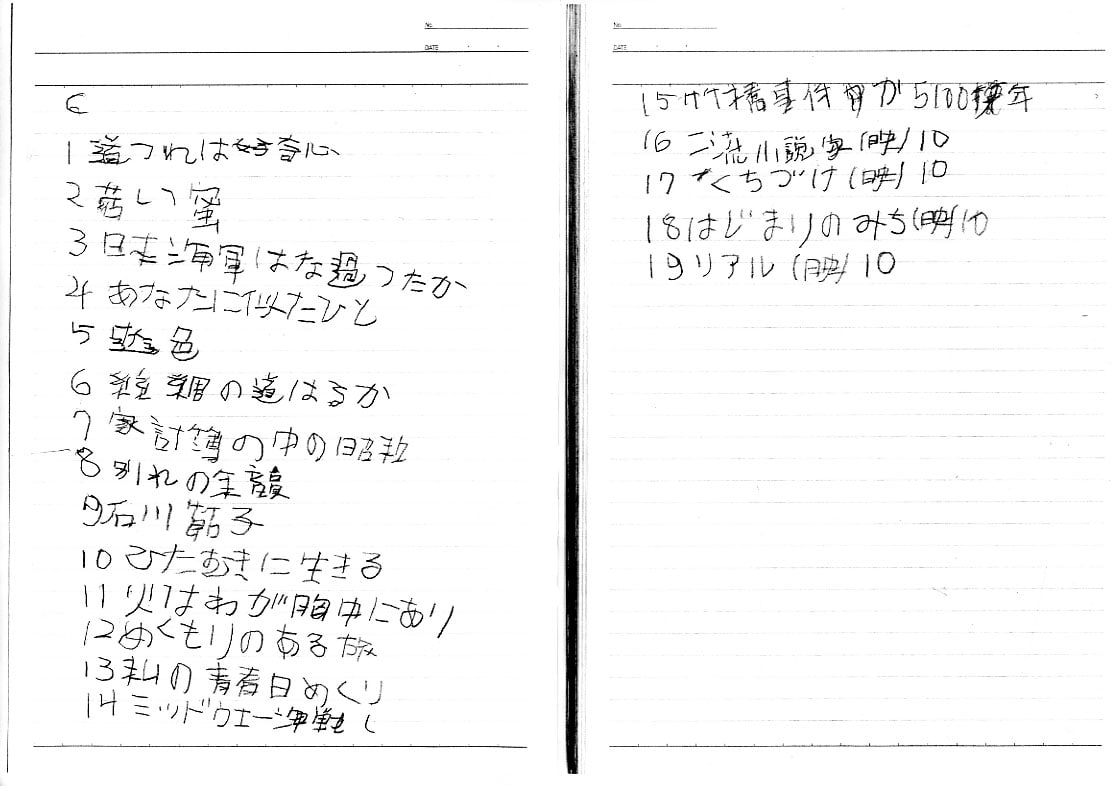 No.
DATE
6
1 道づれは好奇心
2 苦い蜜
3 日本海軍はな過つたか
4 あなたに似たひと
5 金色
6 雑調の道はるか
7 家計簿の中の昭和
8 別れの年
9 石川節子
10 ひたむきに生きる
11 火はわが胸中にあり
12 めくもりのある旅
13 私の青春日めくり
14 ミッドウエー海戦
No.
DATE
15 竹橋事件 が 5100 年
16 二流小説家(映) 10
17 くちづけ(映) 10
18 はじまりのみち(映) 10
19 リアル(映) 10